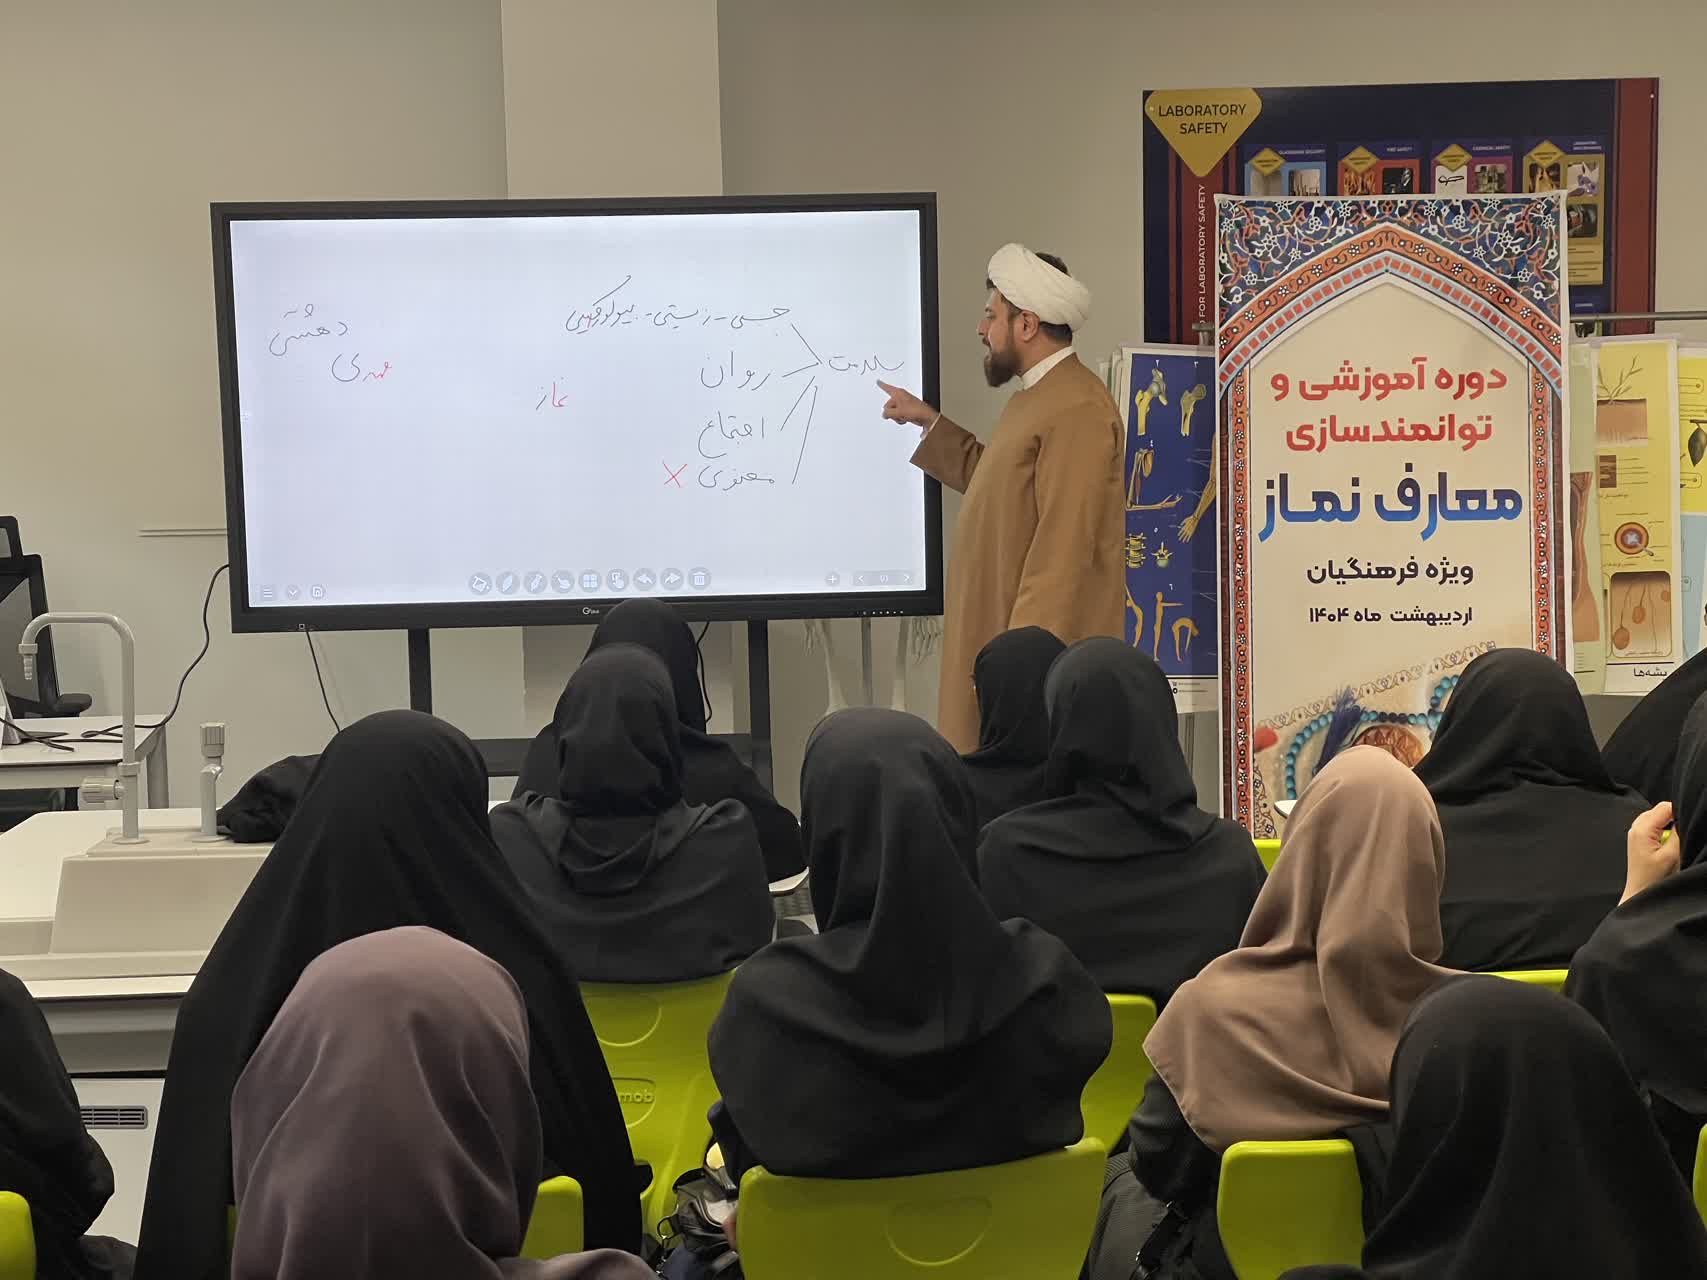 LABORATORY
SAFETY
FOR LABORATORY SAFETY
دوره آموزشی و
توانمندسازی
معارف نماز
ویژه فرهنگیان
اردیبهشت ماه ۱۴۰۴
جسمی - زیستی - بیولوژیکی
سلامت
روان
اجتماع
معنوی
نماز
دهشتی
مهدی
پشه‌ها
mob